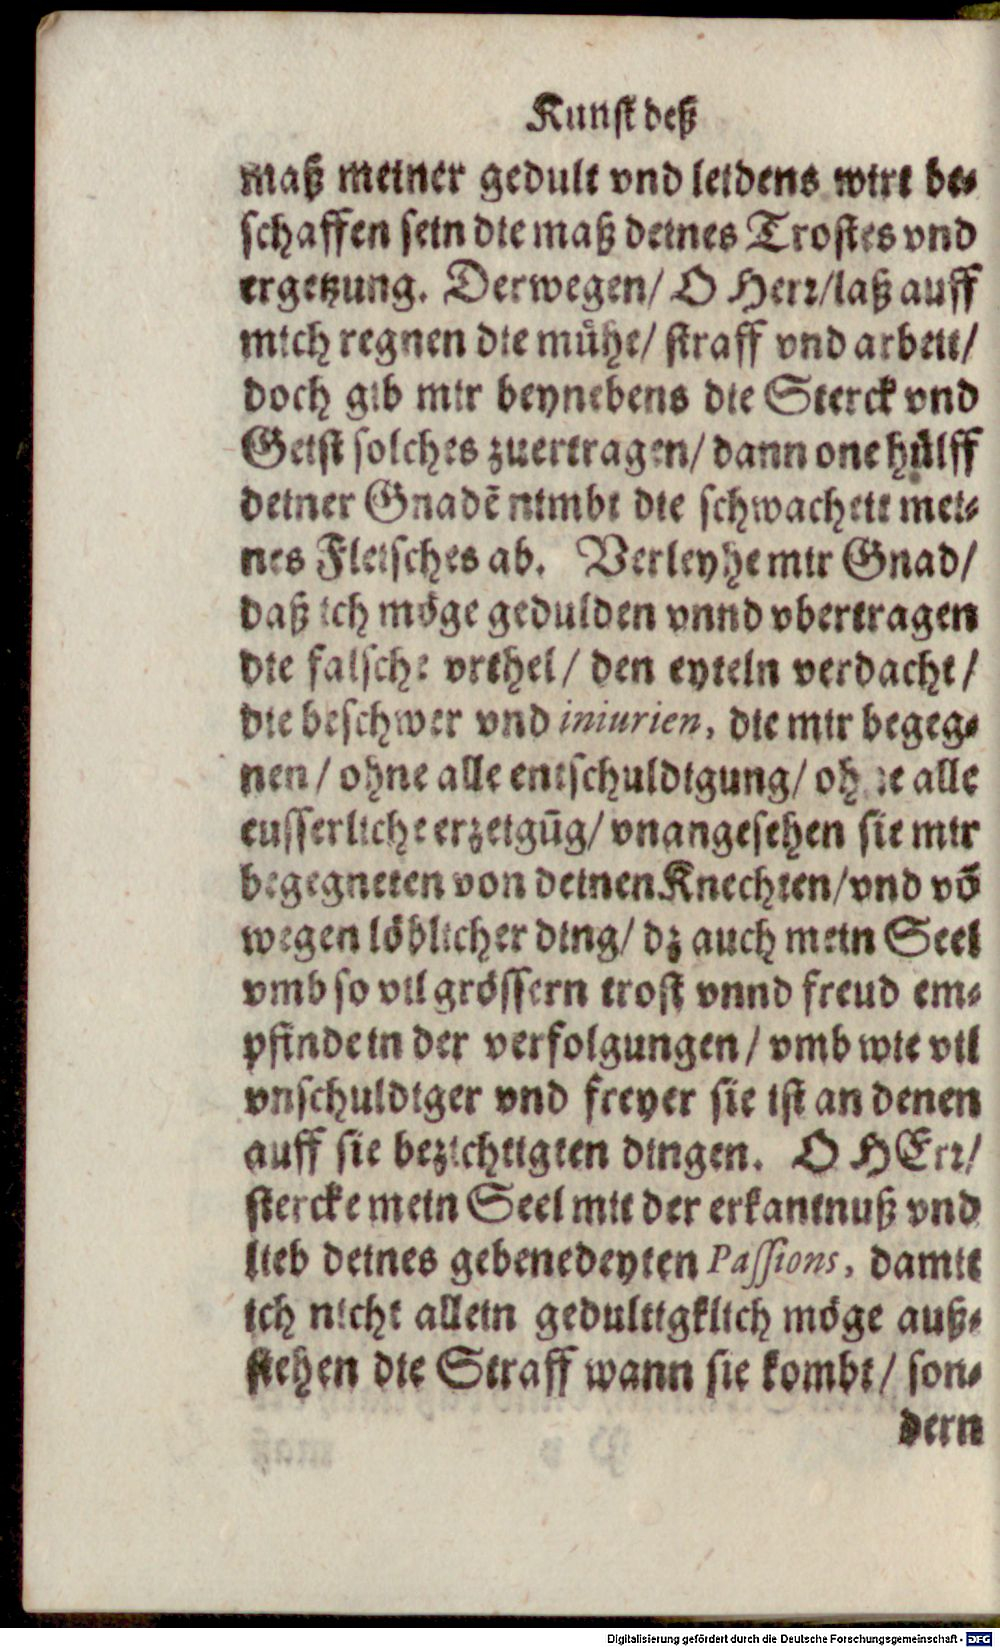 Kunst deß
maß meiner gedult vnd leidens wirt be-
schaffen sein die maß deines Trostes vnd
ergetzung. Derwegen/ O Herr/ laß auff
mich regnen die mühe/ straff vnd arbeit/
doch gib mir beynebens die Sterck vnd
Geist solches zuertragen/ dann one hülff
deiner Gnadẽ nimbt die schwacheit mei-
nes Fleisches ab. Verleyhe mir Gnad/
daß ich möge gedulden vnnd vbertragen
die falsche vrthel/ den eyteln verdacht/
die beschwer vnd iniurien, die mir begeg-
nen/ ohne alle entschuldigung/ ohne alle
eusserliche erzeigūg/ vnangesehen sie mir
begegneten von deinen Knechten/ vnd võ
wegen löblicher ding/ dz auch mein Seel
vmb so vil grössern trost vnnd freud em-
pfinde in der verfolgungen/ vmb wie vil
vnschuldiger vnd freyer sie ist an denen
auff sie bezichtigten dingen. O HErr/
stercke mein Seel mit der erkantnuß vnd
lieb deines gebenedeyten Passions, damit
ich nicht allein gedultigklich möge auß-
stehen die Straff wann sie kombt/ son-
dern
Digitalisierung gefördert durch die Deutsche Forschungsgemeinschaft - DFG